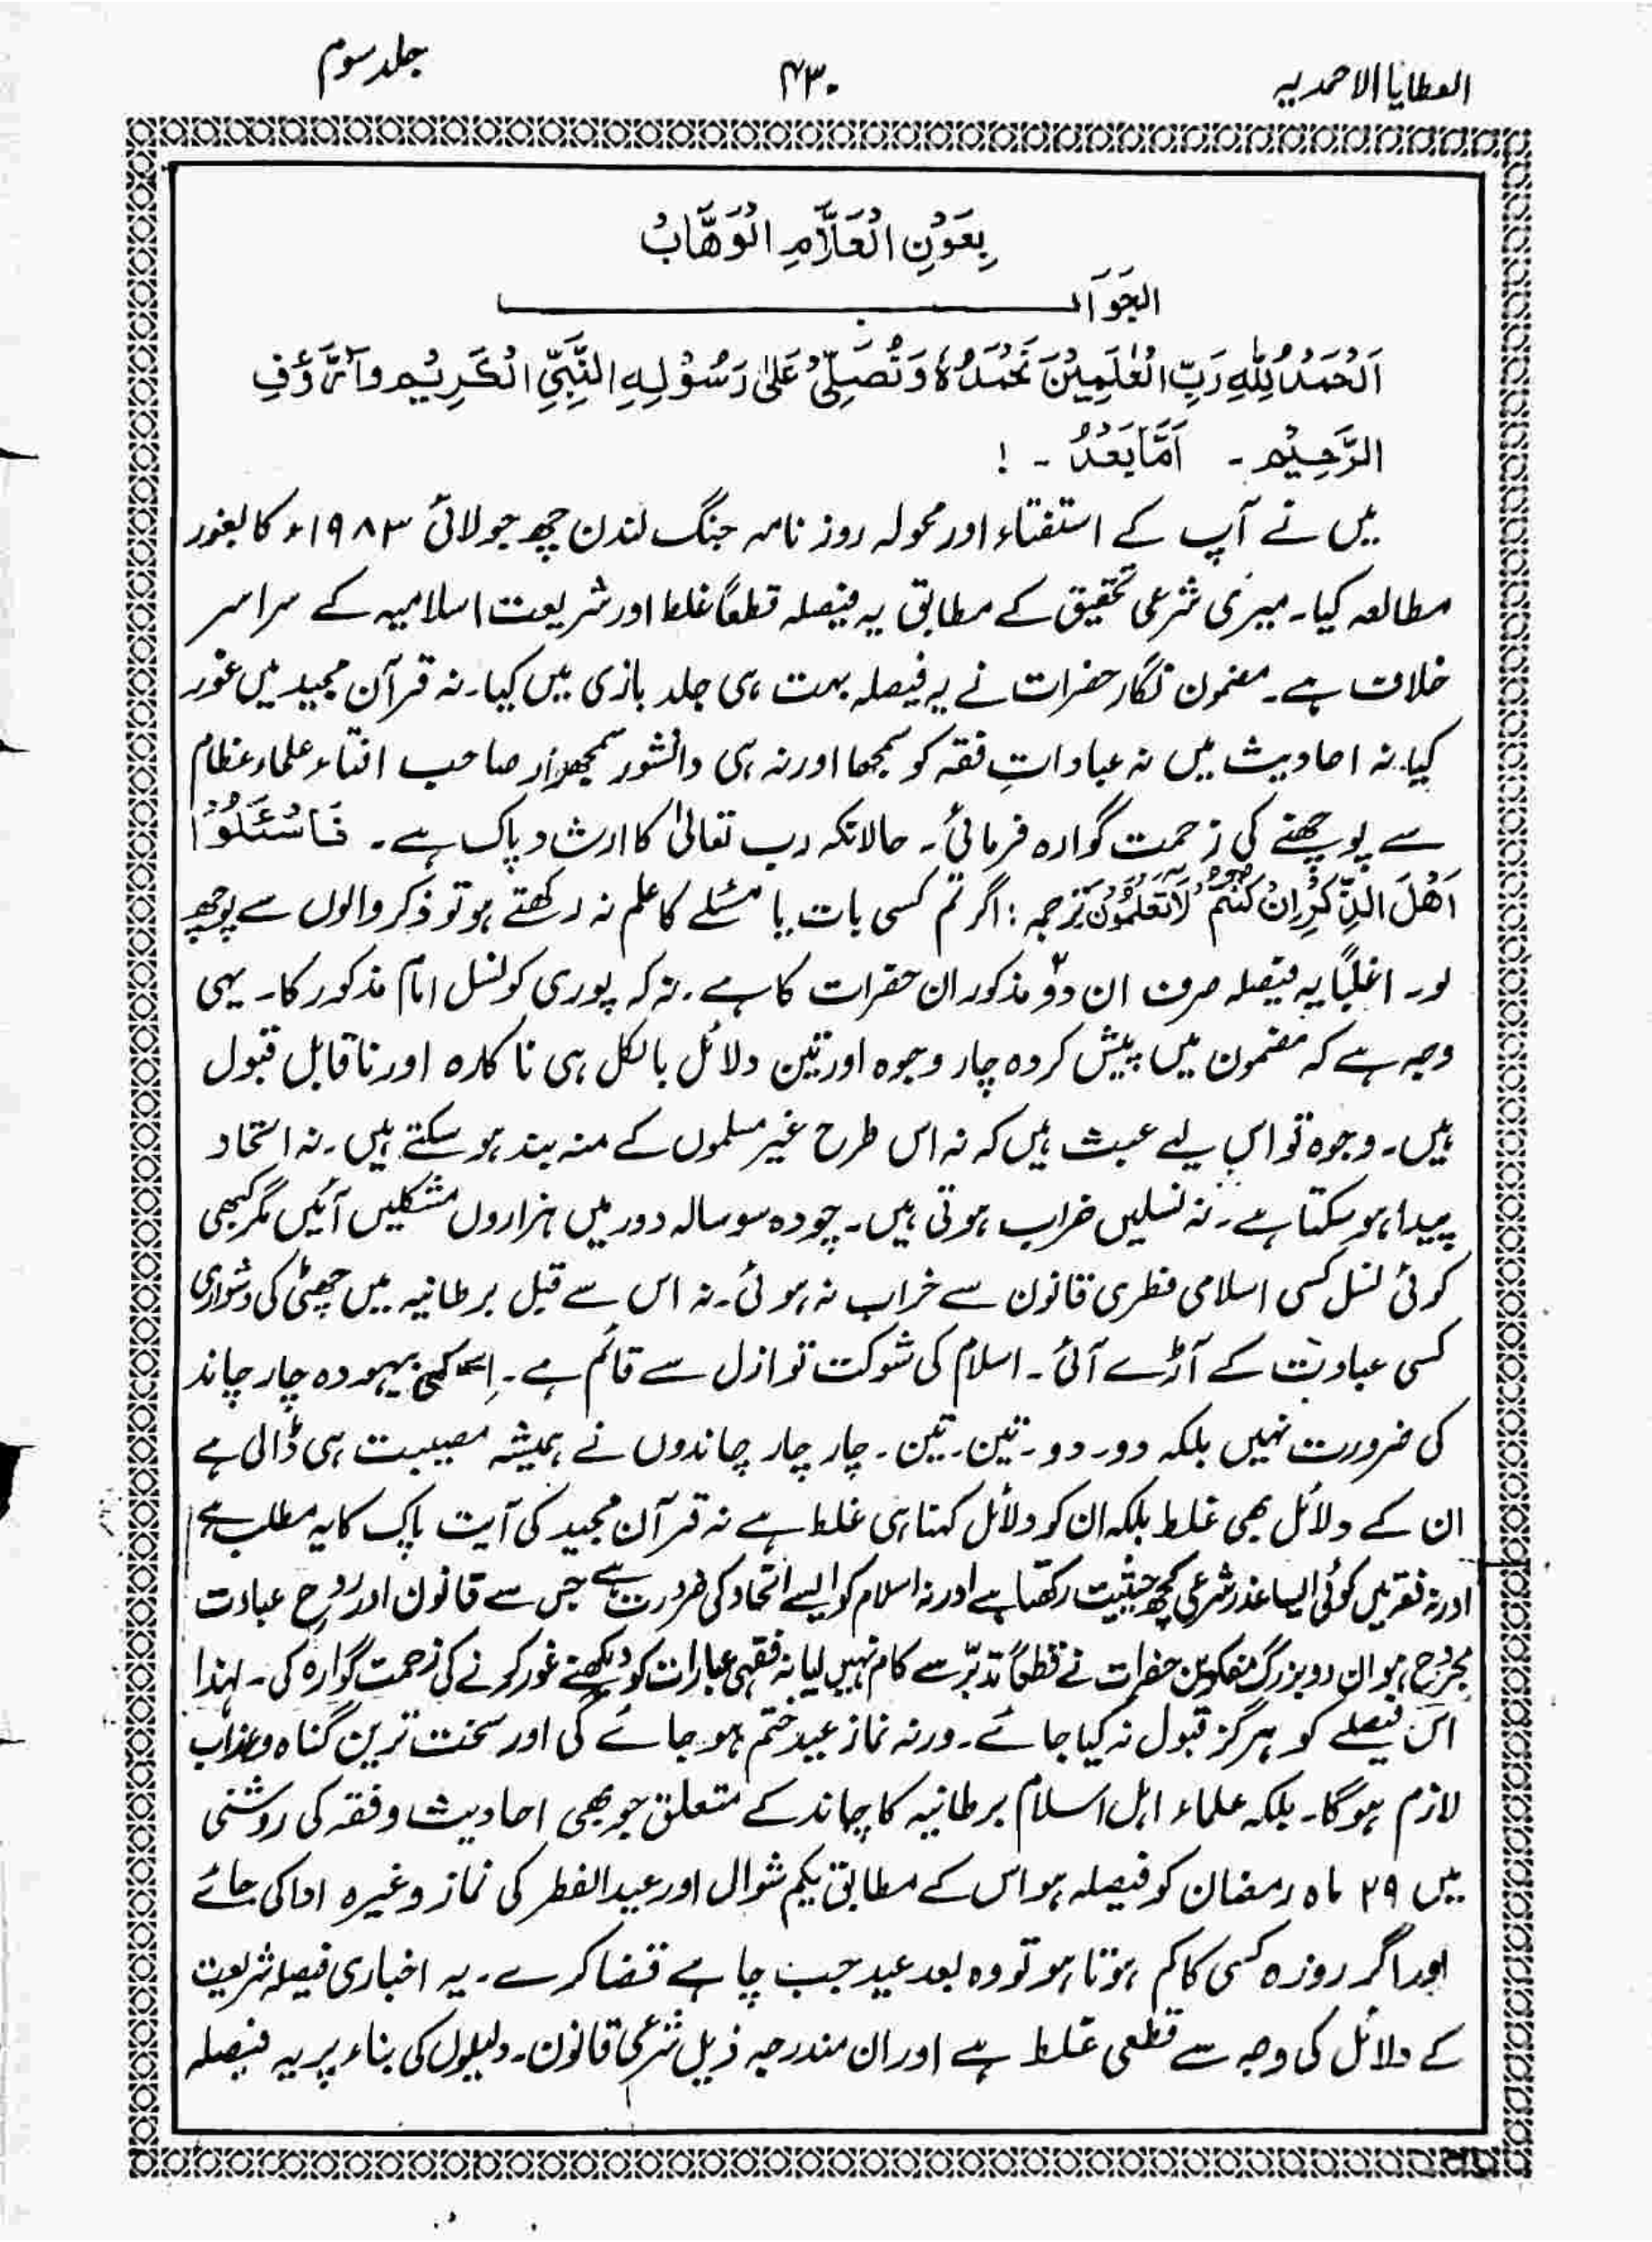 العطایا الاحمدیہ
۴۳۰
جلد سوم
بِعَوْنِ الْعَلَّامِ الْوَهَّابُ
الجَوَابـــــــــ
اَلْحَمْدُ لِلّٰهِ رَبِّ الْعٰلَمِيْنَ نَحْمَدُهٗ وَنُصَلِّیْ عَلٰى رَسُوْلِهِ النَّبِيِّ الْكَرِيْمِ وَالرَّؤُفِ
الرَّحِيْمِ ۔ اَمَّا بَعْدُ ۔ !
میں نے آپ کے استفتاء اور محولہ روز نامہ جنگ لندن چھ جولائی ۱۹۸۳ء کا بغور
مطالعہ کیا۔ میری شرعی تحقیق کے مطابق یہ فیصلہ قطعاً غلط اور شریعت اسلامیہ کے سراسر
خلاف ہے۔ مضمون نگار حضرات نے یہ فیصلہ بہت ہی جلد بازی میں کیا۔ نہ قرآن مجید میں غور
کیا۔ نہ احادیث میں نہ عبادات فقہ کو سمجھا اور نہ ہی دانشور سمجھدار صاحب افتاء علماء عظام
سے پوچھنے کی زحمت گوارہ فرمائی۔ حالانکہ رب تعالیٰ کا ارشاد پاک ہے۔ فَاسْئَلُوْا
اَهْلَ الذِّكْرِ اِنْ كُنْتُمْ لَا تَعْلَمُوْنَ ترجمہ : اگر تم کسی بات یا مسئلے کا علم نہ رکھتے ہو تو ذکر والوں سے پوچھ
لو۔ اغلباً یہ فیصلہ صرف ان دو مذکوران حضرات کا ہے۔ نہ کہ پوری کونسل امام مذکور کا۔ یہی
وجہ ہے کہ مضمون میں پیش کردہ چار وجوہ اور تین دلائل بالکل ہی نا کارہ اور نا قابل قبول
ہیں۔ وجوہ تو اس لیے عبث ہیں کہ نہ اس طرح غیر مسلموں کے منہ بند ہو سکتے ہیں۔ نہ اتحاد
پیدا ہو سکتا ہے۔ نہ نسلیں خراب ہوتی ہیں۔ چودہ سو سالہ دور میں ہزاروں مشکلیں آئیں مگر کبھی
کوئی نسل کسی اسلامی فطری قانون سے خراب نہ ہوئی۔ نہ اس سے قبل برطانیہ میں چھٹی کی دشواری
کسی عبادت کے آڑے آئی۔ اسلام کی شوکت تو ازل سے قائم ہے۔ اسے کسی بیہودہ چار چاند
کی ضرورت نہیں بلکہ دو۔ دو۔ تین۔ تین۔ چار چار چاندوں نے ہمیشہ مصیبت ہی ڈالی ہے
ان کے دلائل بھی غلط بلکہ ان کو دلائل کہنا ہی غلط ہے نہ قرآن مجید کی آیت پاک کا یہ مطلب ہے
اور نہ فقہ میں کوئی ایسا عذر شرعی کچھ حیثیت رکھتا ہے اور نہ اسلام کو ایسے اتحاد کی ضرورت ہے جس سے قانون اور روح عبادت
مجروح ہو ان دو بزرگ مفکرین حضرات نے قطعاً تدبّر سے کام نہیں لیا نہ فقہی عبارات کو دیکھنے غور کرنے کی زحمت گوارہ کی۔ لہذا
اس فیصلے کو ہرگز قبول نہ کیا جائے۔ ورنہ نماز عید ختم ہو جائے گی اور سخت ترین گناہ و عذاب
لازم ہوگا۔ بلکہ علماء اہل اسلام برطانیہ کا چاند کے متعلق جو بھی احادیث و فقہ کی روشنی
میں ۲۹ ماہ رمضان کو فیصلہ ہو اس کے مطابق یکم شوال اور عید الفطر کی نماز وغیرہ ادا کی جائے
اور اگر روزہ کسی کا کم ہوتا ہو تو وہ بعد عید جب چاہے قضا کرے۔ یہ اخباری فیصلہ شریعت
کے دلائل کی وجہ سے قطعی غلط ہے اور ان مندرجہ ذیل شرعی قانون۔ دلیلوں کی بناء پر یہ فیصلہ